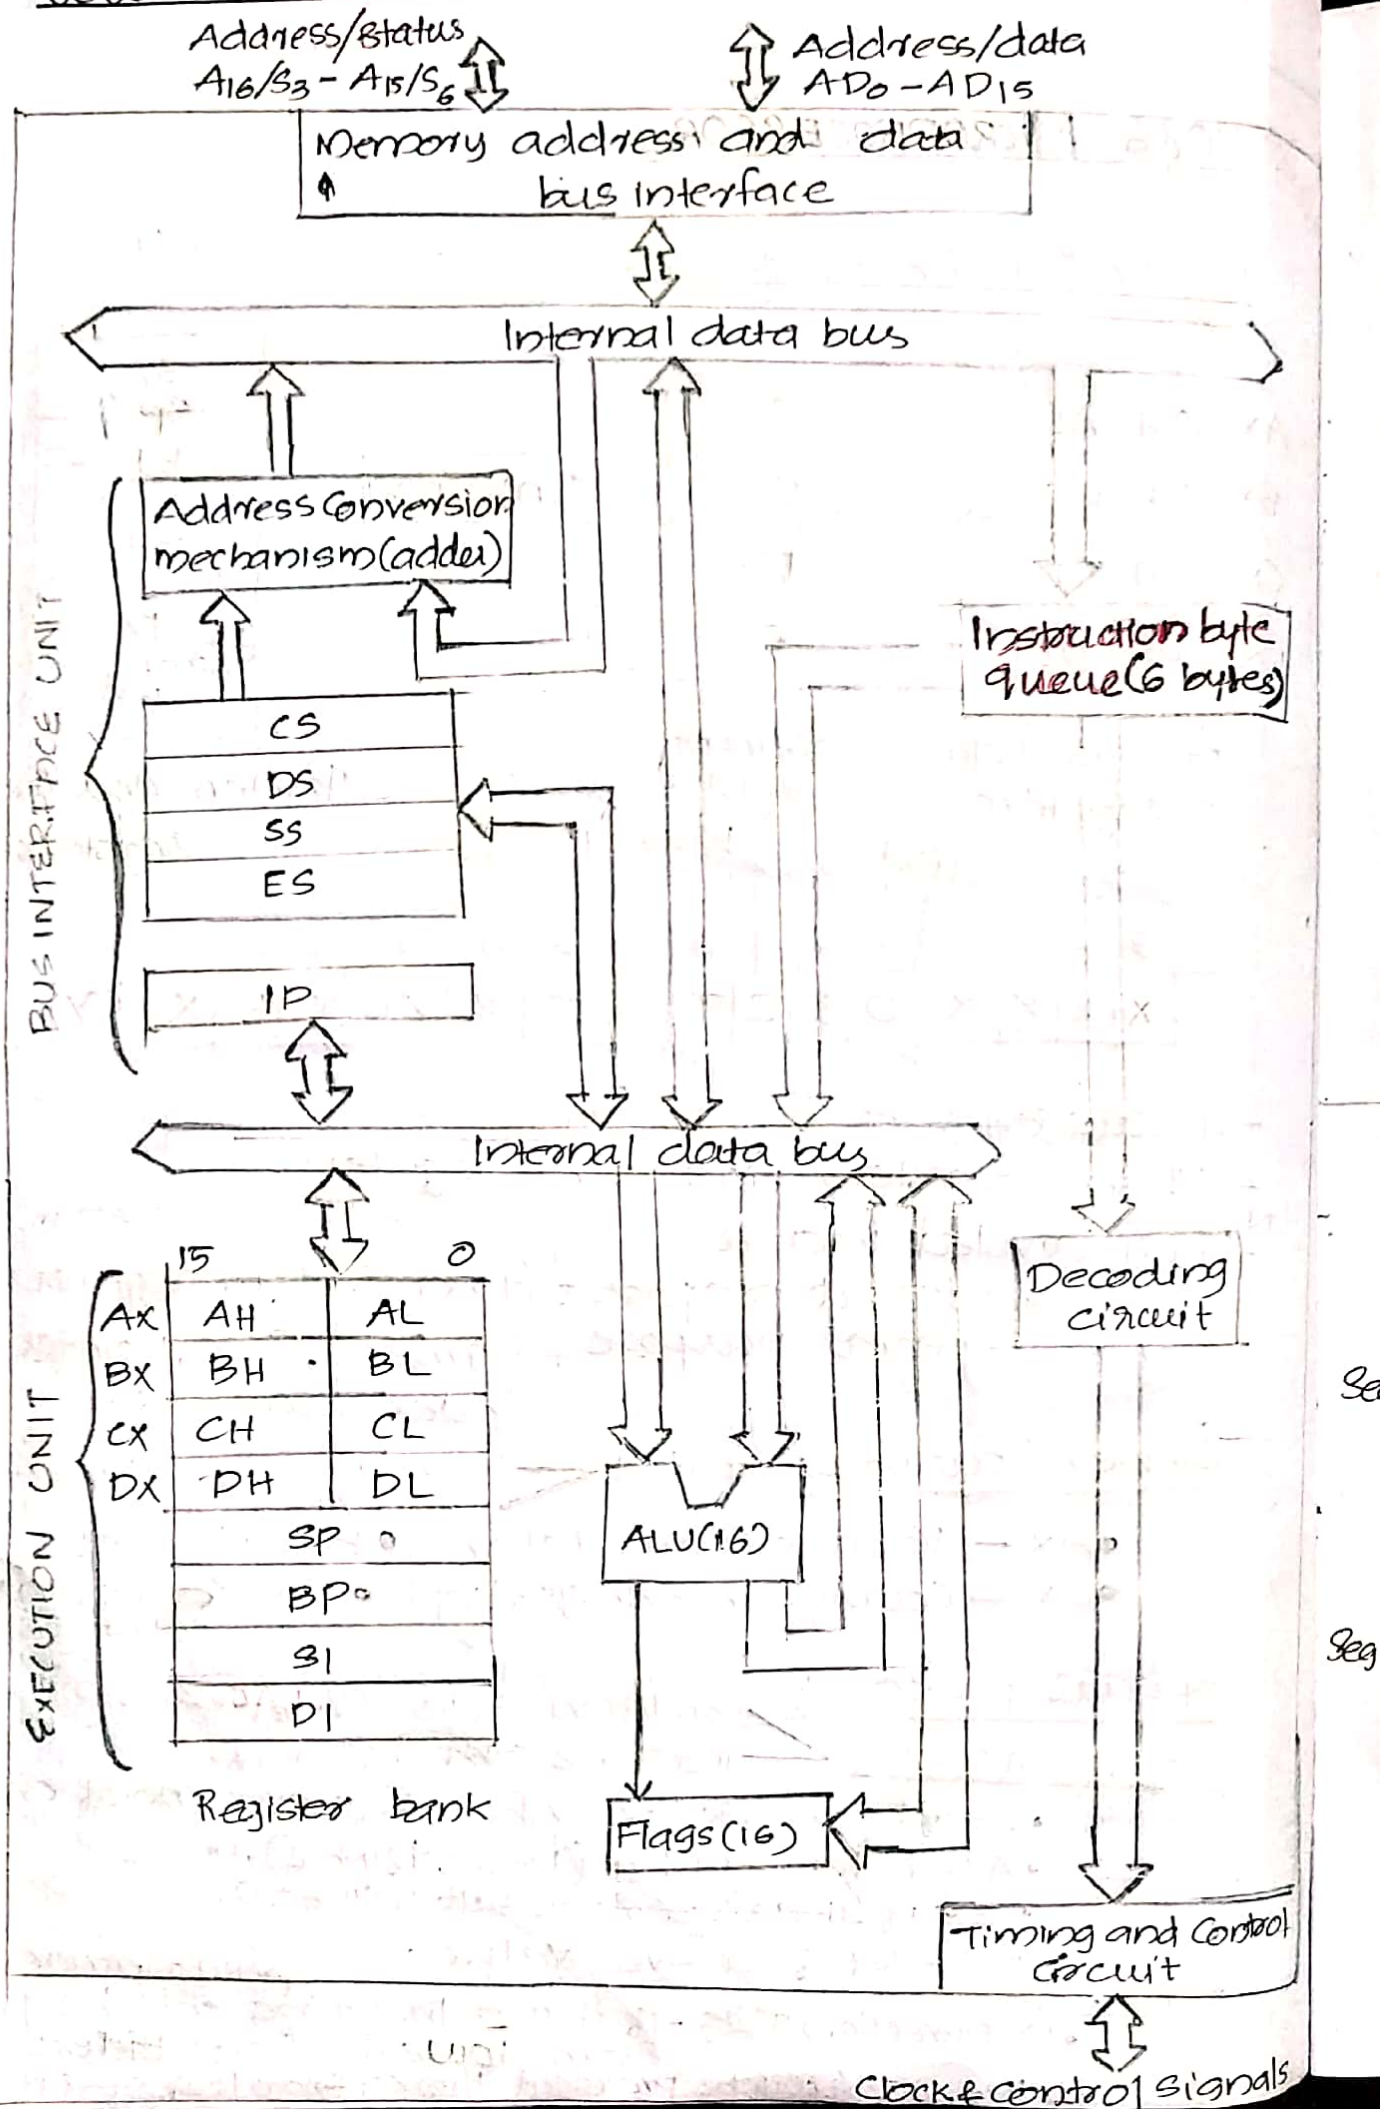 Address/Status
A16/S3 - A15/S6
Address/data
AD0 - AD15
Memory address and data
bus interface
Internal data bus
Address Conversion
mechanism (adder)
BUS INTERFACE UNIT
Instruction byte
queue (6 bytes)
CS
DS
SS
ES
IP
Internal data bus
15 0
AX AH AL
BX BH BL
CX CH CL
DX DH DL
SP
BP
SI
DI
EXECUTION UNIT
Register bank
ALU(16)
Flags (16)
Decoding
circuit
Timing and Control
circuit
Clock & Control Signals
Seg